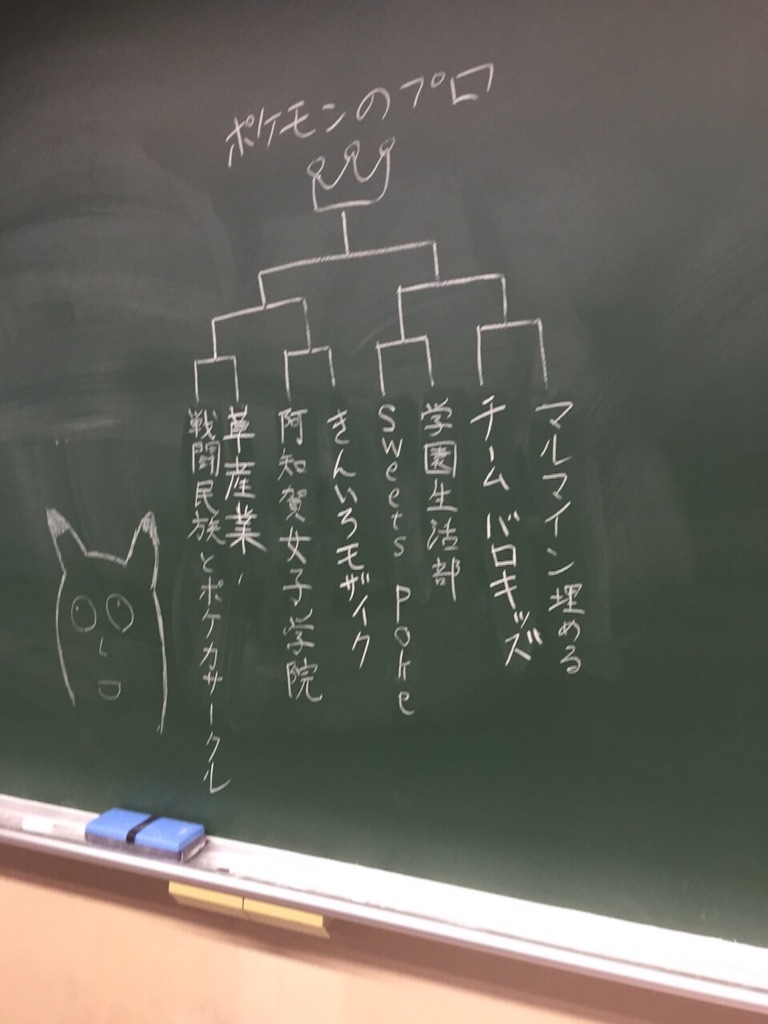 ポケモンのプロ
マルマイン埋める
チームバロキッズ
学園生活部
sweets poke
きんいろモザイク
阿知賀女子学院
草産業
戦闘民族とポケカサークル